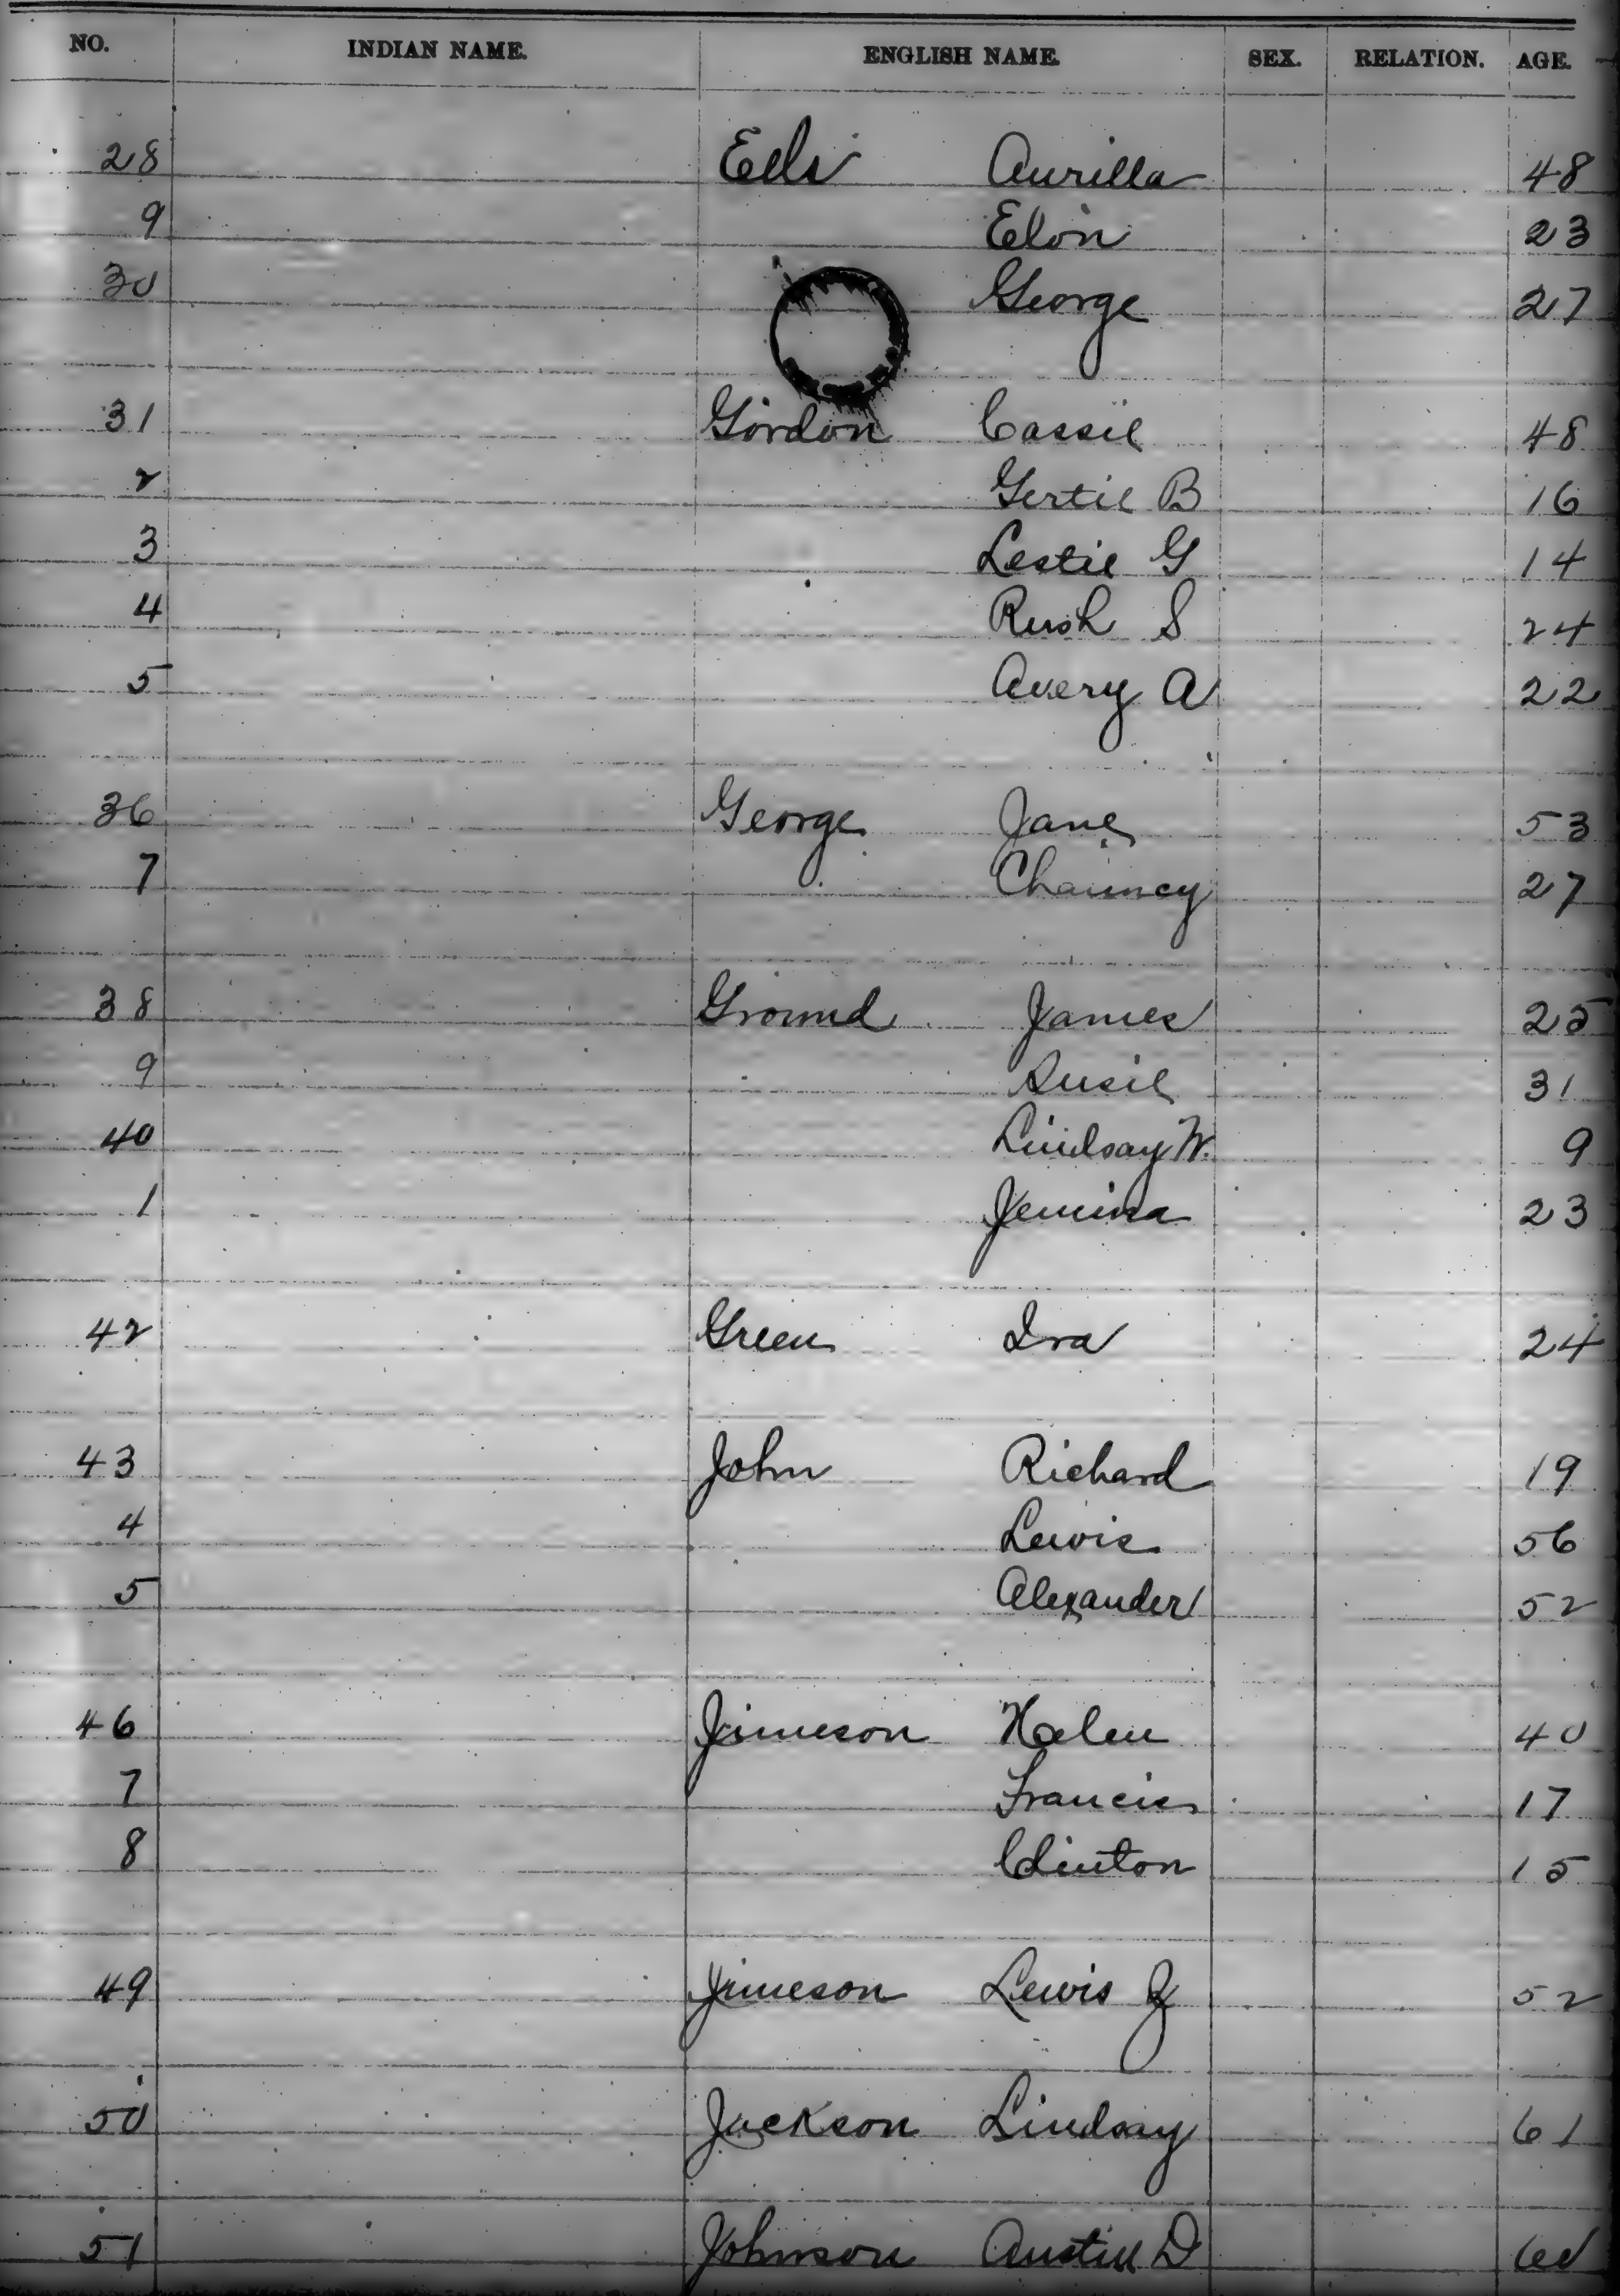 NO. INDIAN NAME. ENGLISH NAME. SEX. RELATION. AGE.
28 Eels Aurilla 48
9 Elon 23
30 George 27
31 Gordon Cassie 48
2 Gertie B 16
3 Leslie G 14
4 Rush S 24
5 Avery A 22
36 George Jane 53
7 Chauncy 27
38 Ground James 25
9 Susie 31
40 Lindsay W. 9
1 Jemima 23
42 Green Ira 24
43 John Richard 19
4 Lewis 56
5 Alexander 52
46 Jimeson Helen 40
7 Francis 17
8 Clinton 15
49 Jimeson Lewis J 52
50 Jackson Lindsay 61
51 Johnson Austin D